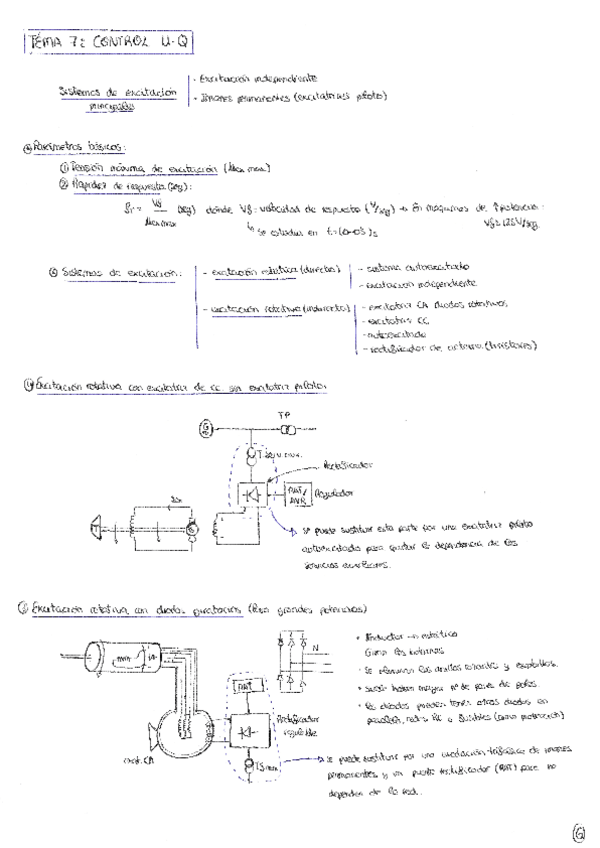 TEMA 7: CONTROL U-Q
Sistemas de excitación principales
- Excitación independiente
- Imanes permanentes (excitatrices piloto)
Parámetros básicos:
① Tensión máxima de excitación (Uex max)
② Rapidez de respuesta (seg):
(seg) donde Vg: velocidad de respuesta (V/seg) → En maquinas de
Se estudia en
Sistemas de excitación:
- excitación estática (directo)
- sistema autoexcitado
- excitación independiente
- excitación rotativa (indirecto)
- excitatriz CA diodos rotativos
- excitatriz CC
- autoexcitado
- rectificador de (tiristores)
Excitación rotativa con excitatriz de cc sin excitatriz piloto
TP
G
Rectificador
RAT/AVR
Regulador
Se puede sustituir esta parte por una excitatriz piloto
autoexcitada para quitar la dependencia de los
servicios auxiliares.
Excitación rotativa con diodos giratorios (Para grandes potencias)
N
RAT
Rectificador regulable
exct. CA
• Inductor → estático
Giran las bobinas
• Se eliminan los anillos rozantes y escobillas.
• Suele haber mayor nº de pares de polos.
• Los diodos pueden tener otros diodos en
paralelo, redes RC o fusibles (como protección)
Se puede sustituir por una excitación trifásica de imanes
permanentes y un puente rectificador (RAT) para no
depender de la red.
6